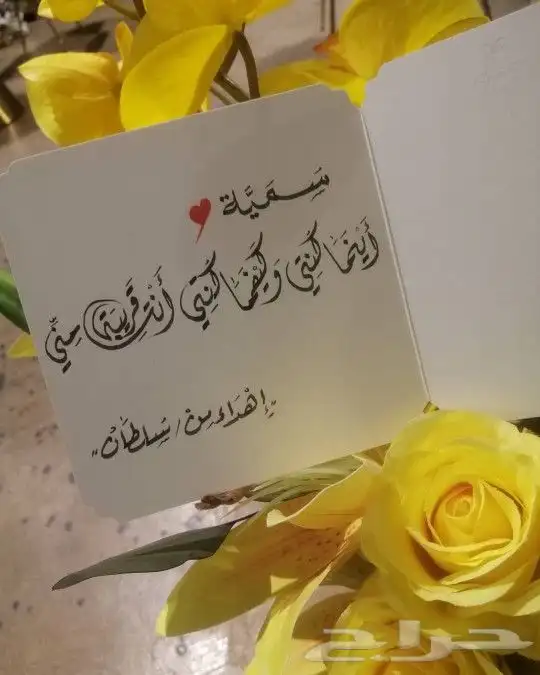 سَمَيَّة
أَيْنَمَا كُنْتِي وَكَيْفَمَا كُنْتِي أَنْتِ قَرِيبَة مِنِّي
"إهْدَاء مِنْ / سُلطَانْ"
حراج